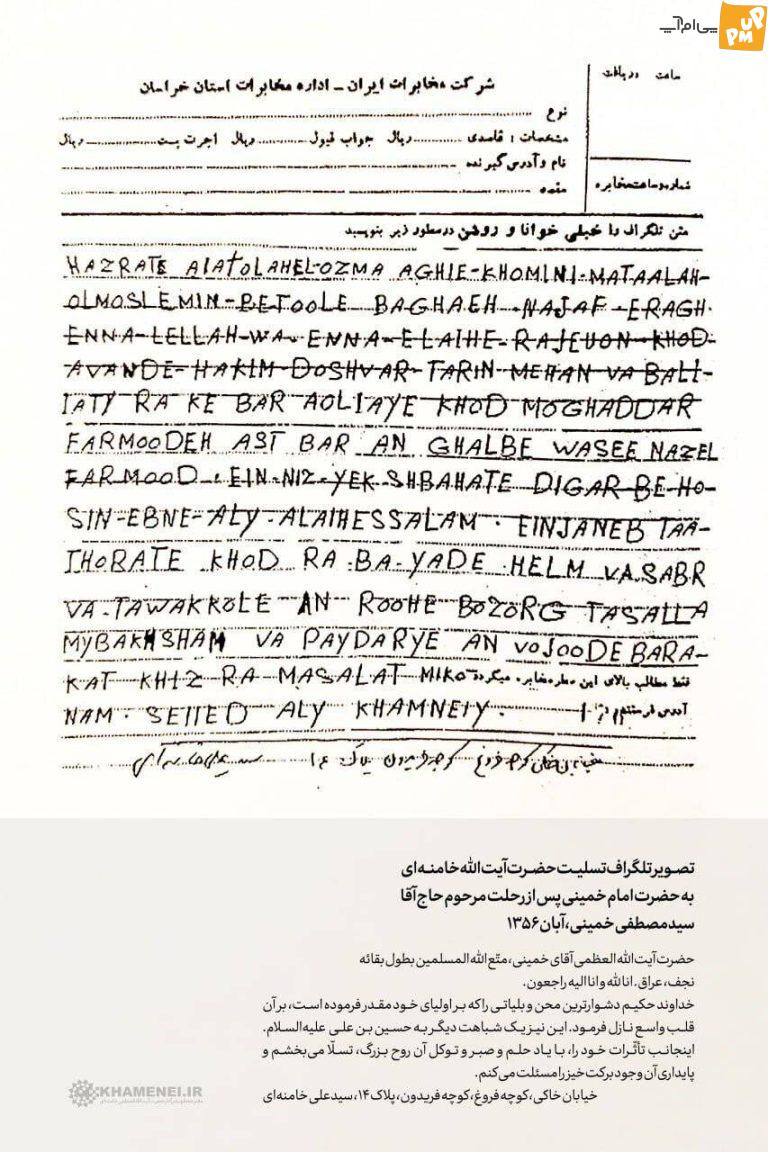 پی‌ام‌آپ
PM UP
ساعت دریافت
شرکت مخابرات ایران ـ اداره مخابرات استان خراسان
نوع
مشخصات : قاصدی ریال جواب قبول ریال اجرت پست ریال
نام وآدرس گیرنده
شماره وساعت مخابره
مقصد
متن تلگراف را خیلی خوانا و روشن درسطور زیر بنویسید
HAZRATE AIATOLAHEL-OZMA AGHIE-KHOMINI-MATAALAH-
OLMOSLEMIN-BETOOLE BAGHAEH-NAJAF-ERAGH.
ENNA-LELLAH-WA-ENNA-ELAIHE-RAJEUON-KHOD-
AVANDE-HAKIM-DOSHVAR-TARIN-MEHAN VA BALI-
IATY RA KE BAR AOLIAYE KHOD MOGHADDAR
FARMOODEH AST BAR AN GHALBE WASEE NAZEL
FARMOOD. EIN-NIZ-YEK-SHBAHATE DIGAR-BE-HO-
SIN-EBNE-ALY-ALAIHESSALAM. EINJANEB TAA-
THORATE KHOD RA BA-YADE HELM VA SABR
VA-TAWAKKOLE AN ROOHE BOZORG TASALLA
MYBAKHSHAM VA PAYDARYE AN VOJOODE BARA-
KAT KHIZ RA MASALAT MIKO فقط مطالب بالای این سطر مخابره میگردد
NAM. SEIIED ALY KHAMNEIY. آدرس فرستنده
خیابان خاکی کوچه فروغ کوچه فریدون پلاک ۱۴ سید علی خامنه‌ای
تصویر تلگراف تسلیت حضرت آیت‌الله خامنه‌ای
به حضرت امام خمینی پس از رحلت مرحوم حاج آقا
سید مصطفی خمینی، آبان ۱۳۵۶
حضرت آیت الله العظمی آقای خمینی، متّع الله المسلمین بطول بقائه
نجف، عراق. انا لله و انا الیه راجعون.
خداوند حکیم دشوارترین محن و بلیاتی را که بر اولیای خود مقدر فرموده است، بر آن
قلب واسع نازل فرمود. این نیز یک شباهت دیگر به حسین بن علی علیه السلام.
اینجانب تأثّرات خود را، با یاد حلم و صبر و توکل آن روح بزرگ، تسلّا می‌بخشم و
پایداری آن وجود برکت خیز را مسئلت می‌کنم.
خیابان خاکی، کوچه فروغ، کوچه فریدون، پلاک ۱۴، سید علی خامنه‌ای
KHAMENEI.IR